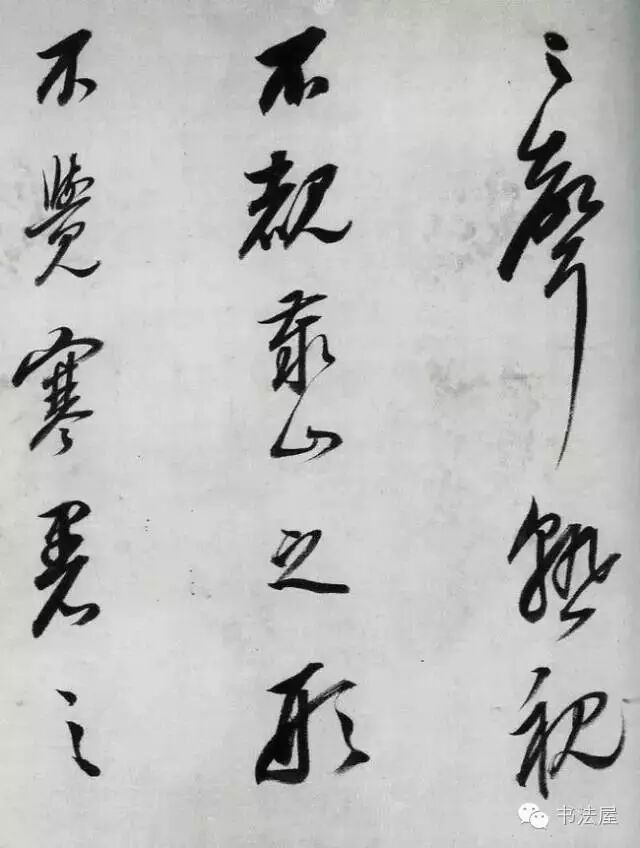 之聲熟視
不覩泰山之形
不覺寒暑之
书法屋